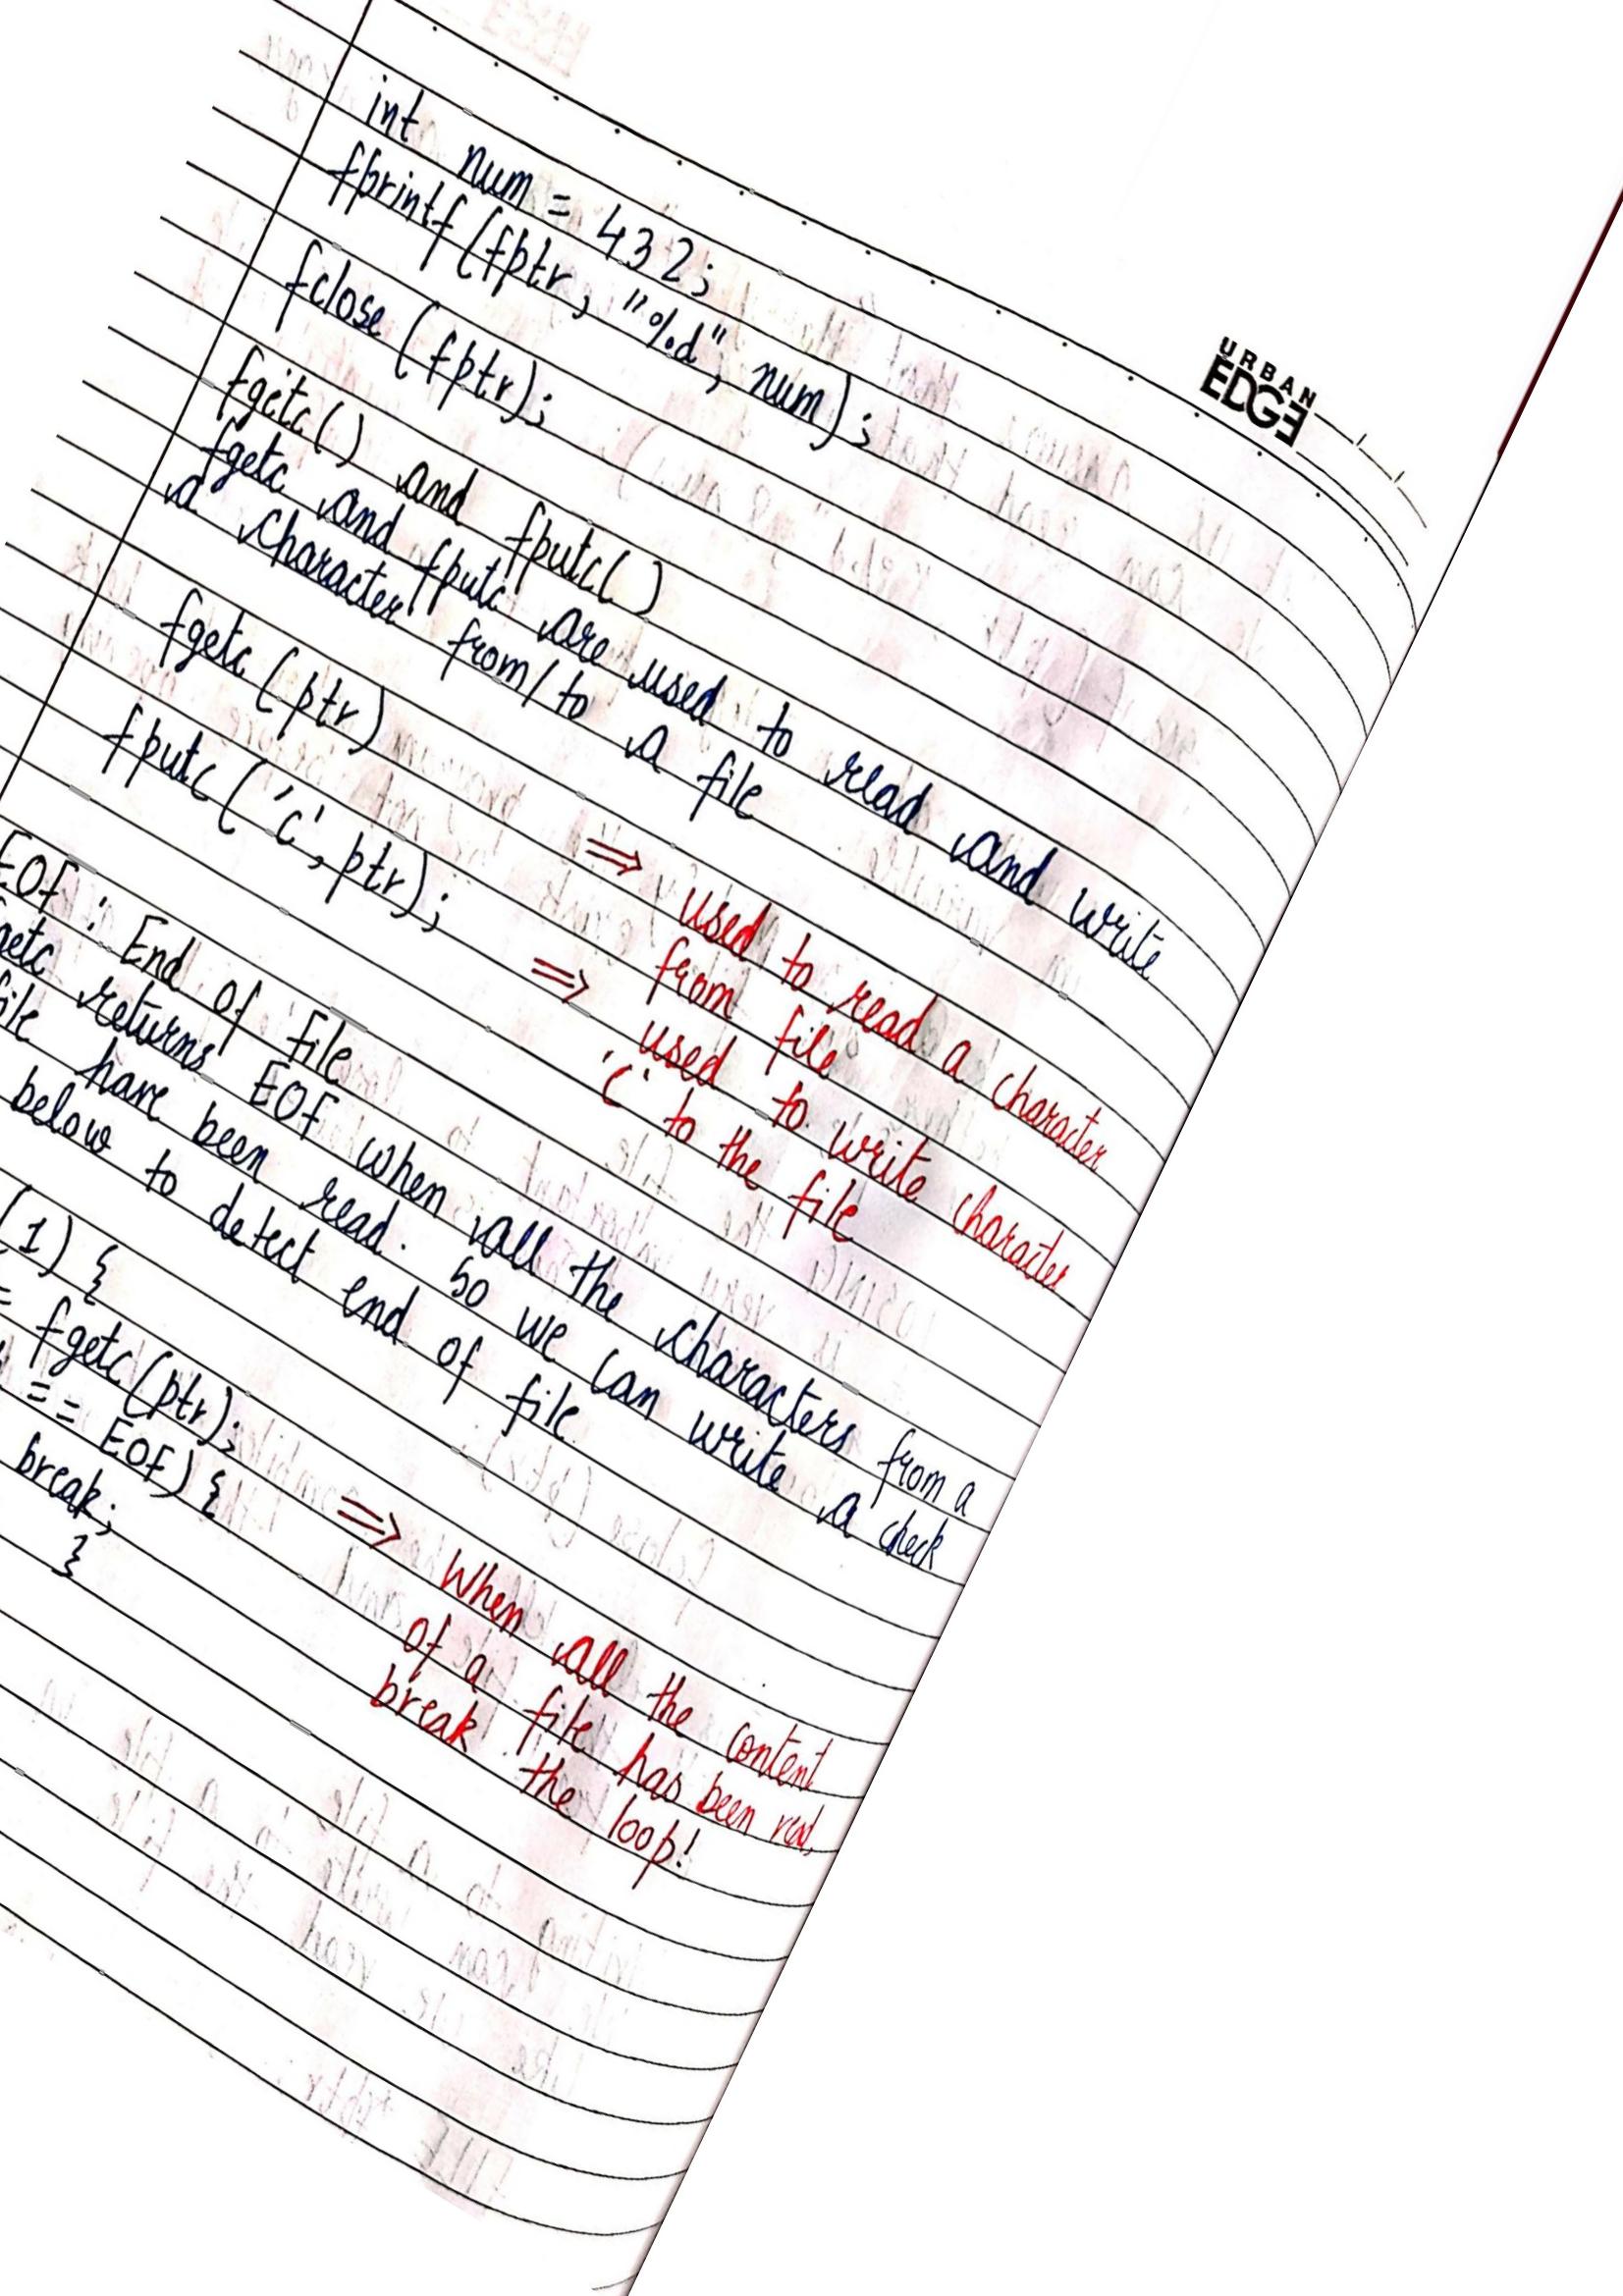 URBAN
EDGE
int num = 432;
fprintf (fptr, "%d", num);
fclose (fptr);
fgetc() and fputc()
fgetc and fputc are used to read and write
a character from/to a file
fgetc (ptr) ⇒ used to read a character
from file
fputc ('c', ptr); ⇒ used to write character
'c' to the file
EOF : End of File
getc returns EOF when all the characters from a
file have been read. So we can write a check
below to detect end of file
(1) {
= fgetc(ptr);
== EOF) { ⇒ When all the content
break; of a file has been read,
} break the loop!